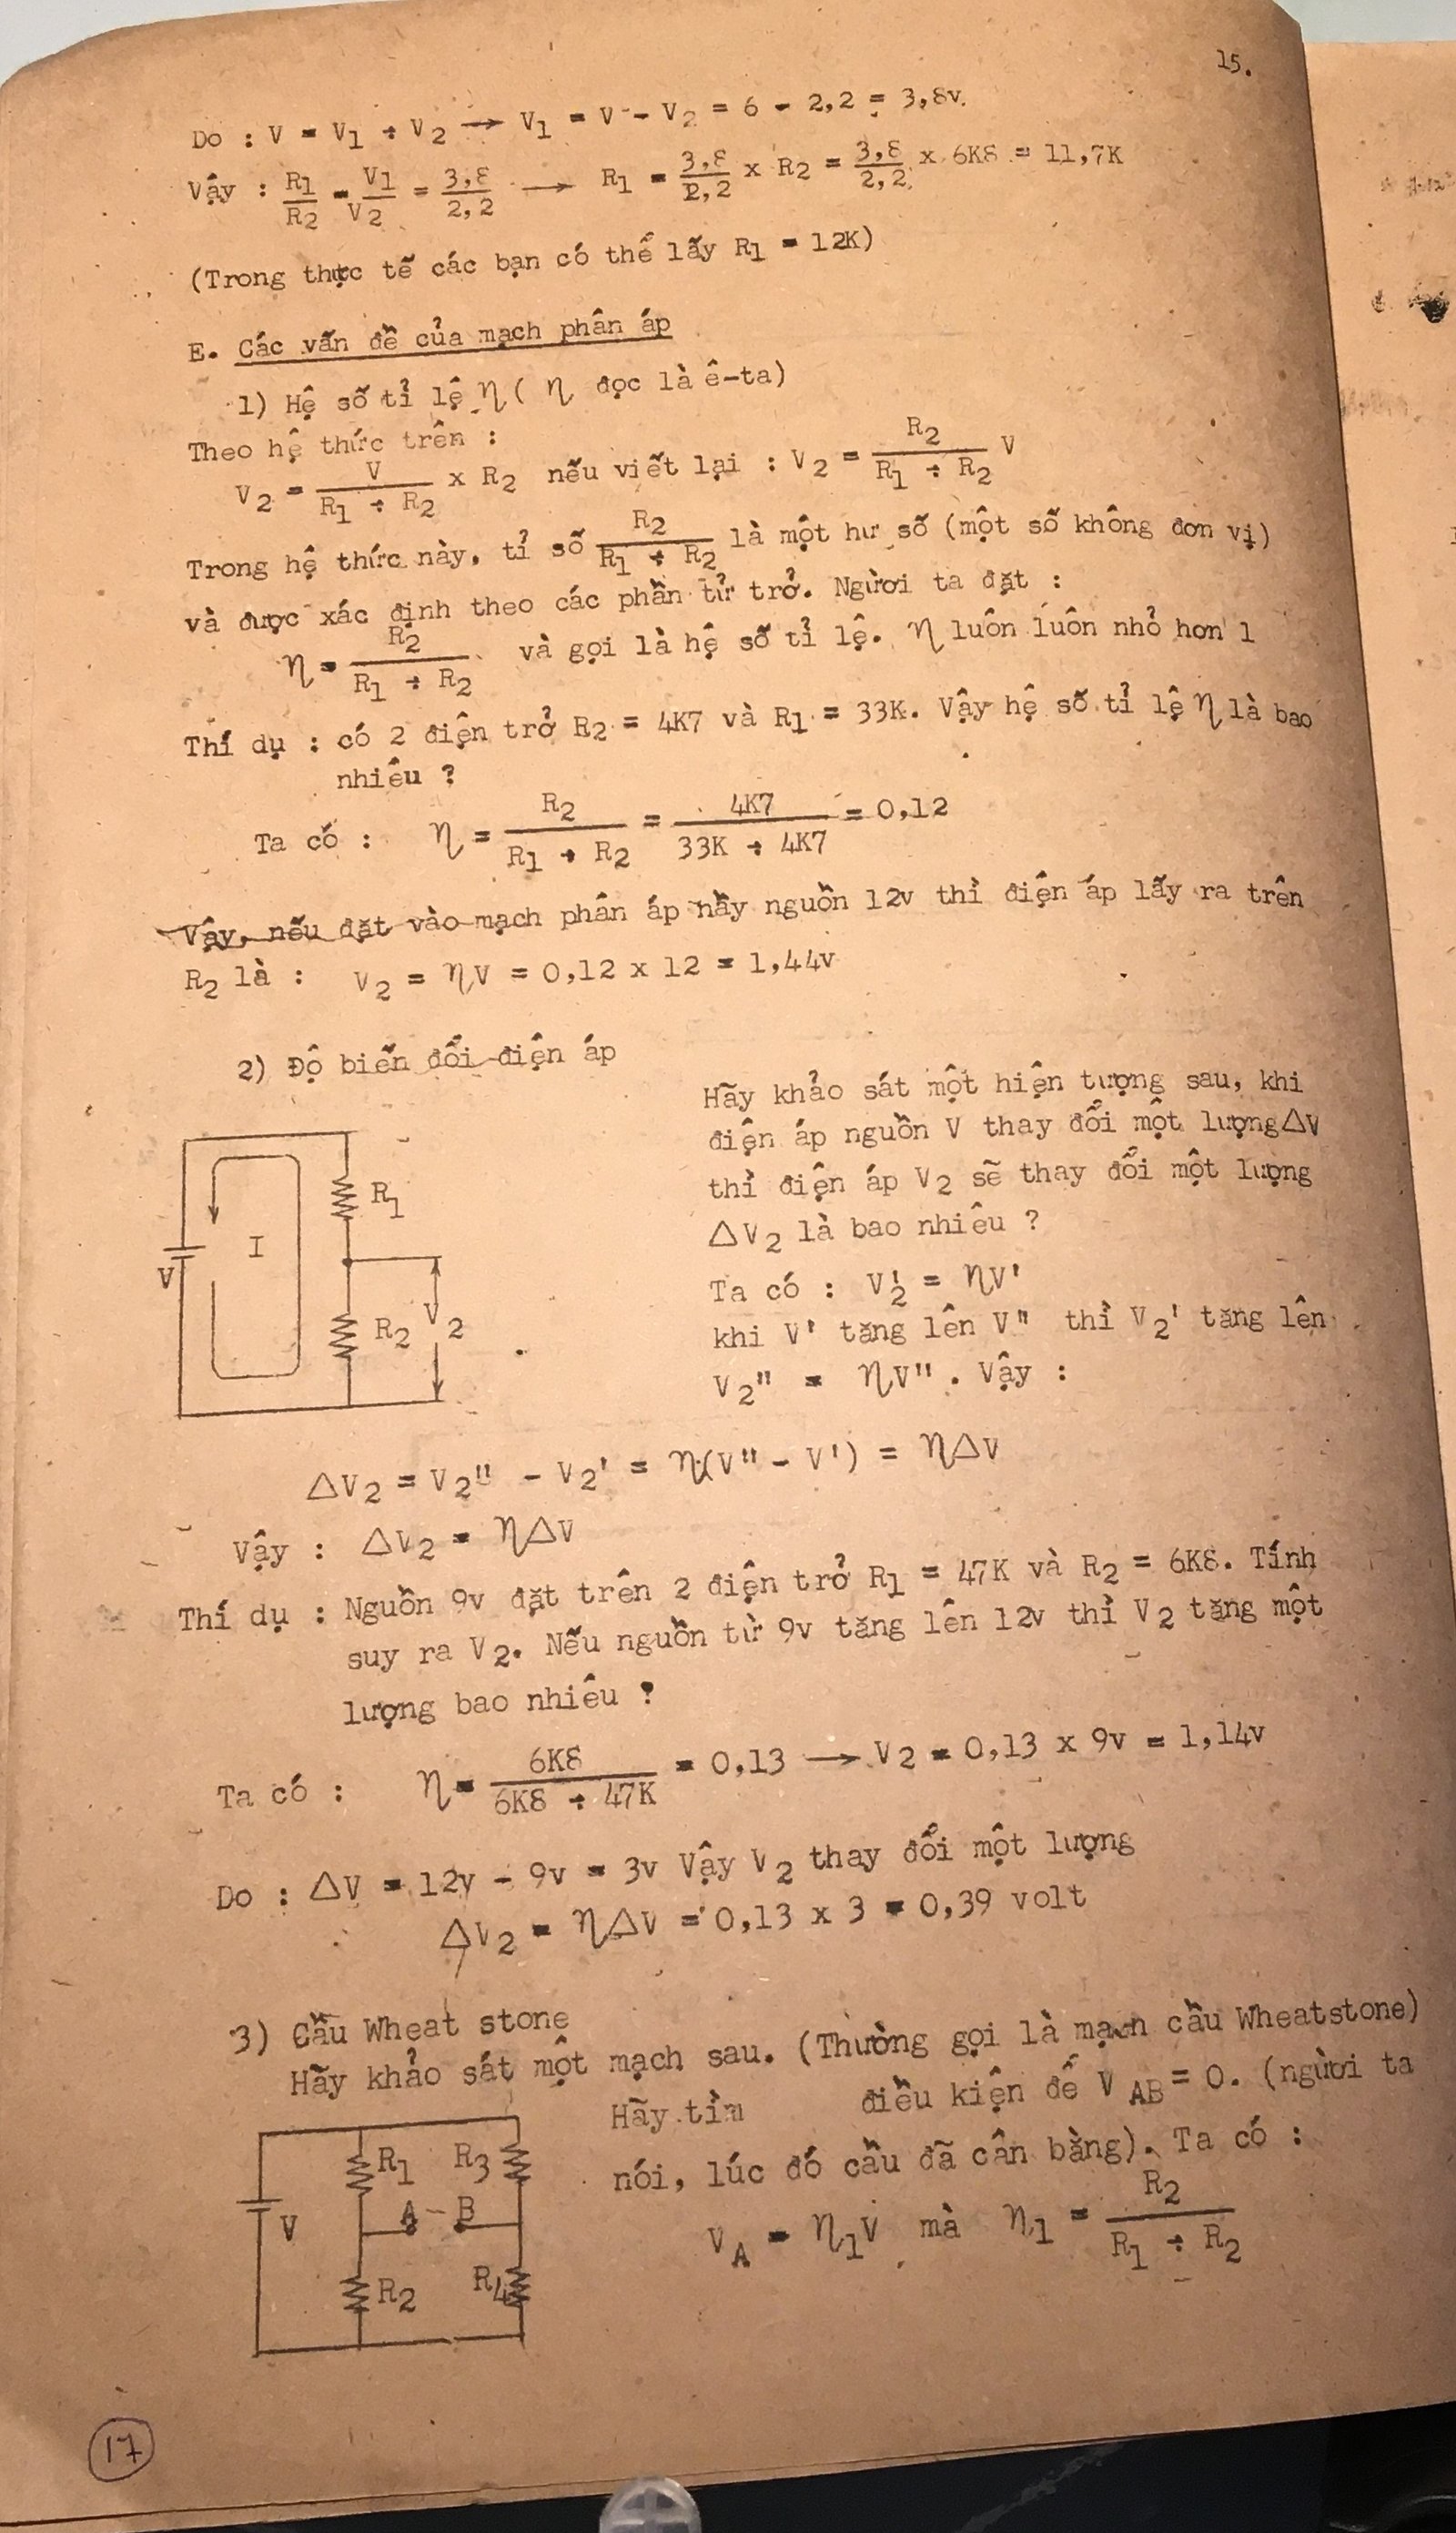 15.
Do : V = V1 + V2 → V1 = V - V2 = 6 - 2,2 = 3,8v.
Vậy : R1/R2 = V1/V2 = 3,8/2,2 → R1 = 3,8/2,2 x R2 = 3,8/2,2 x 6K8 = 11,7K
(Trong thực tế các bạn có thể lấy R1 = 12K)
E. Các vấn đề của mạch phân áp
1) Hệ số tỉ lệ η ( η đọc là ê-ta)
Theo hệ thức trên :
V2 = V/(R1 + R2) x R2 nếu viết lại : V2 = R2/(R1 + R2) V
Trong hệ thức này, tỉ số R2/(R1 + R2) là một hư số (một số không đơn vị)
và được xác định theo các phần tử trở. Người ta đặt :
η = R2/(R1 + R2) và gọi là hệ số tỉ lệ. η luôn luôn nhỏ hơn 1
Thí dụ : có 2 điện trở R2 = 4K7 và R1 = 33K. Vậy hệ số tỉ lệ η là bao
nhiêu ?
Ta có : η = R2/(R1 + R2) = 4K7/(33K + 4K7) = 0,12
Vậy, nếu đặt vào mạch phân áp nầy nguồn 12v thì điện áp lấy ra trên
R2 là : V2 = ηV = 0,12 x 12 = 1,44v
2) Độ biến đổi điện áp
Hãy khảo sát một hiện tượng sau, khi
điện áp nguồn V thay đổi một lượng ΔV
thì điện áp V2 sẽ thay đổi một lượng
ΔV2 là bao nhiêu ?
Ta có : V2' = ηV'
khi V' tăng lên V" thì V2' tăng lên
V2" = ηV" . Vậy :
R1
I
V
R2
V2
ΔV2 = V2" - V2' = η(V" - V') = ηΔV
Vậy : ΔV2 = ηΔV
Thí dụ : Nguồn 9v đặt trên 2 điện trở R1 = 47K và R2 = 6K8. Tính
suy ra V2. Nếu nguồn từ 9v tăng lên 12v thì V2 tăng một
lượng bao nhiêu ?
Ta có : η = 6K8/(6K8 + 47K) = 0,13 → V2 = 0,13 x 9v = 1,14v
Do : ΔV = 12v - 9v = 3v Vậy V2 thay đổi một lượng
ΔV2 = ηΔV = 0,13 x 3 = 0,39 volt
3) Cầu Wheat stone
Hãy khảo sát một mạch sau. (Thường gọi là mạch cầu Wheatstone)
Hãy tìm điều kiện để V AB = 0. (người ta
nói, lúc đó cầu đã cân bằng). Ta có :
VA = η1V mà η1 = R2/(R1 + R2)
R1 R3
A - B
V
R2 R4
17